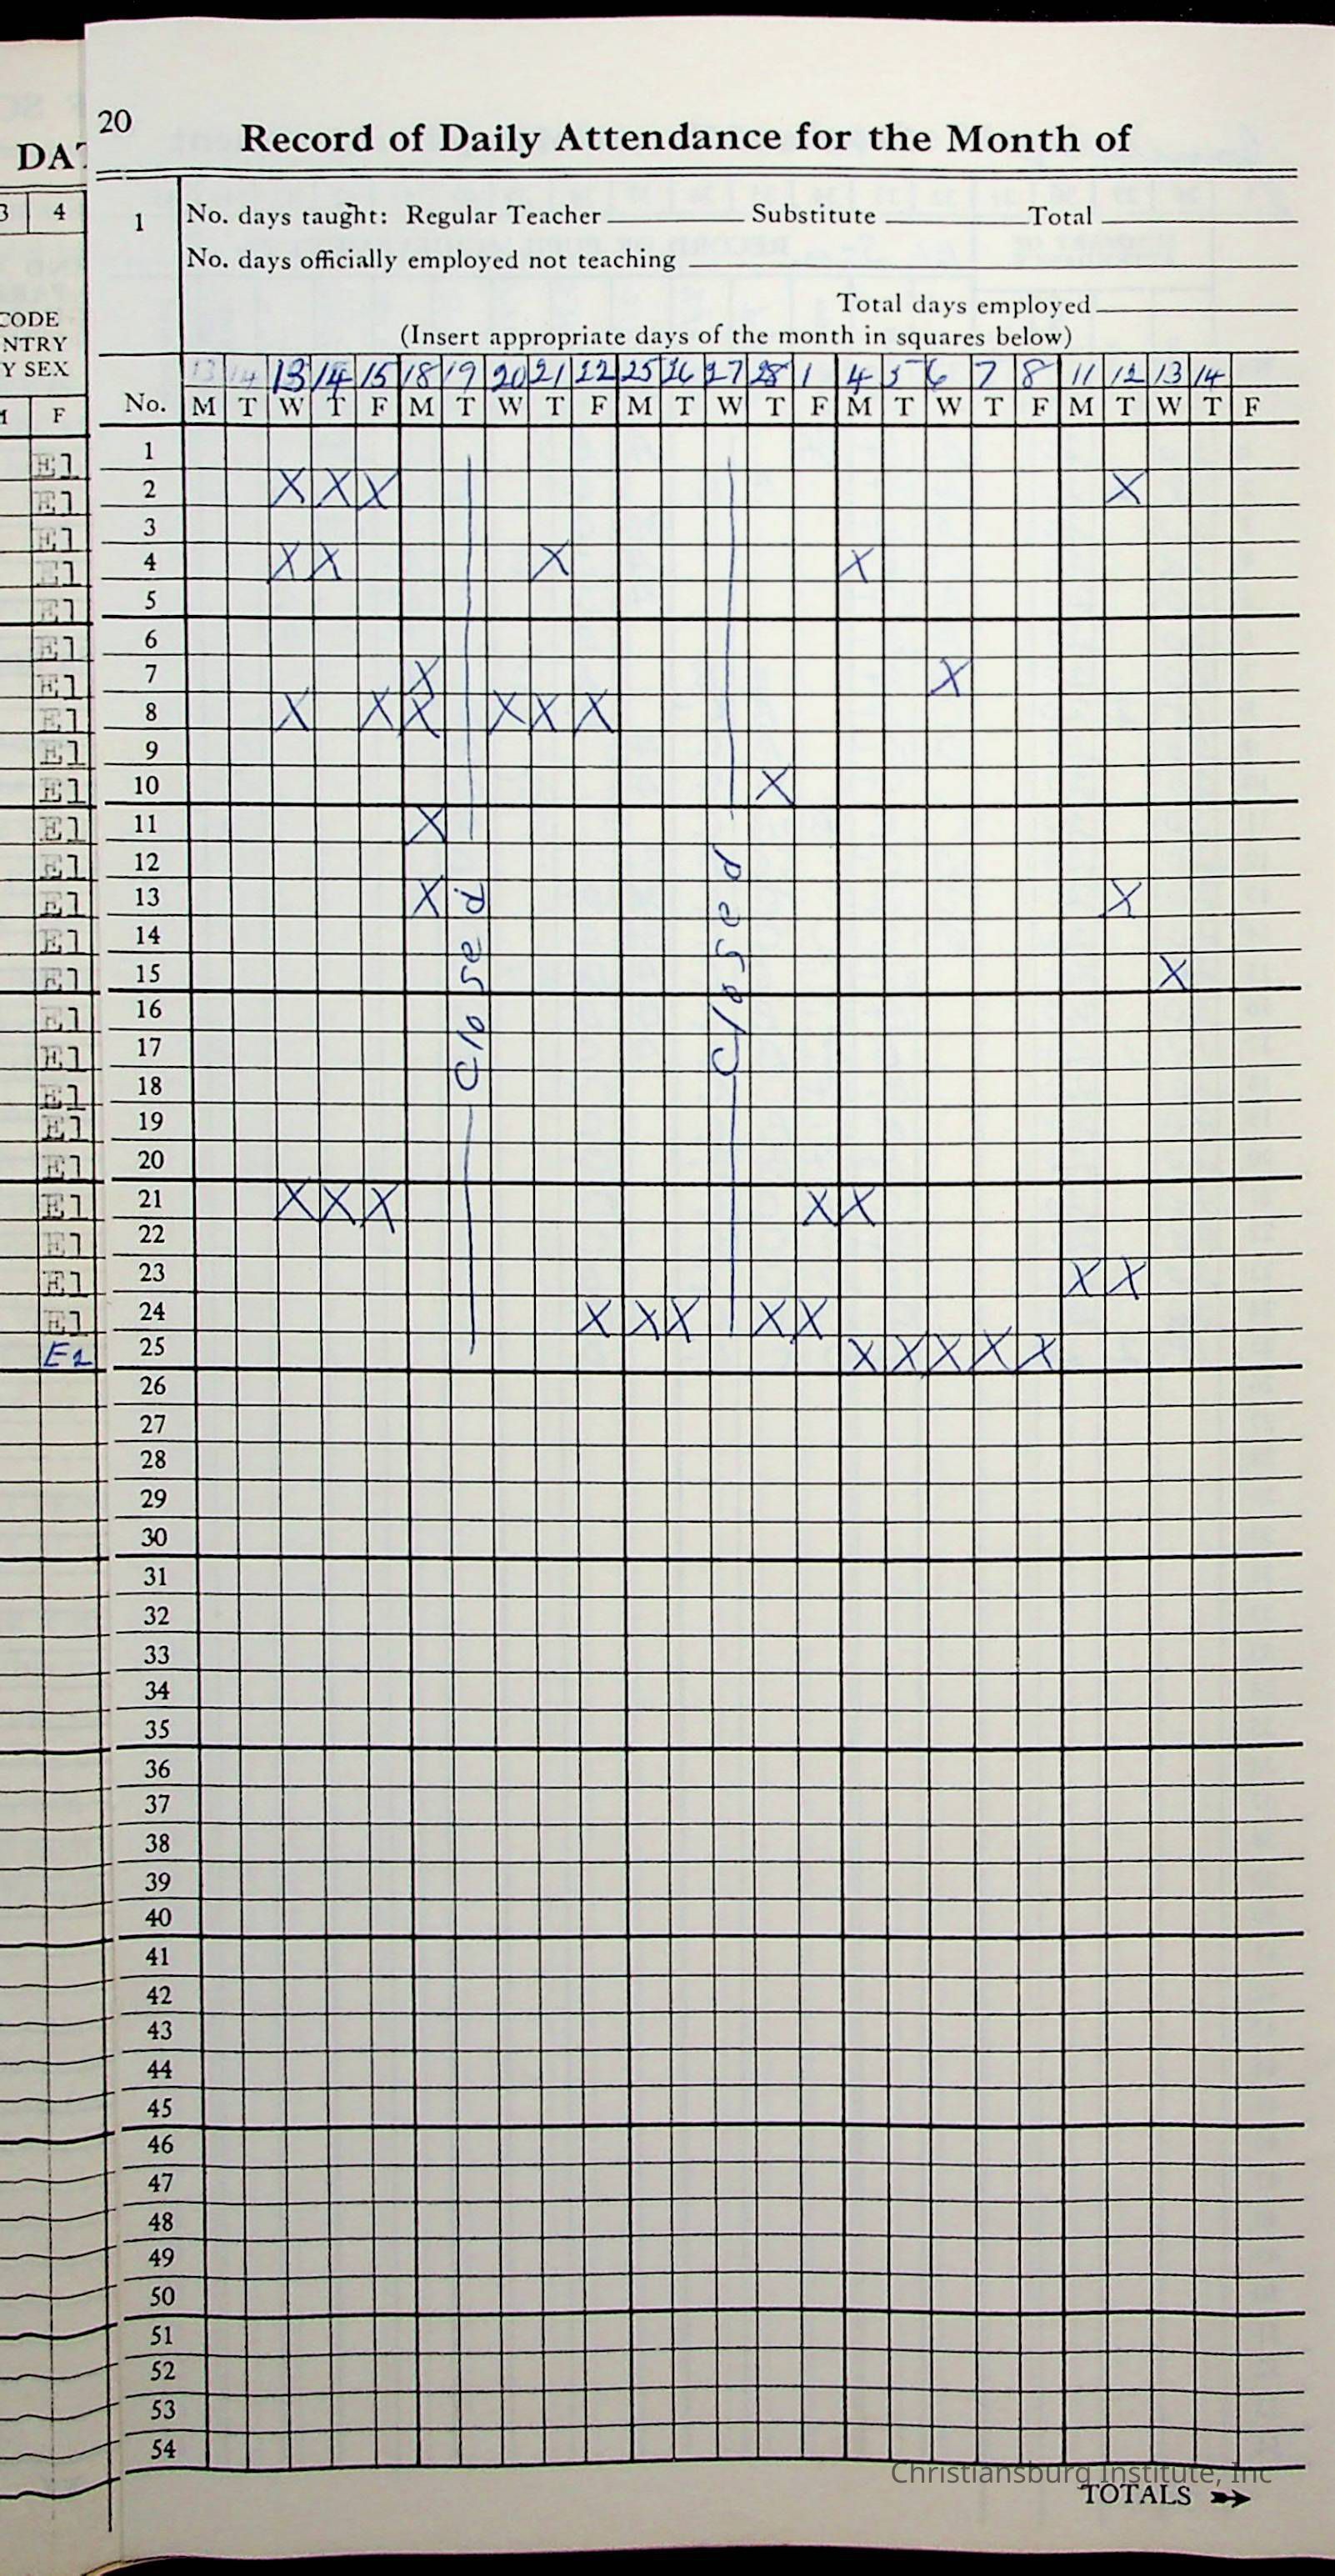 20
Record of Daily Attendance for the Month of
DAT
3 4
1
No. days taught: Regular Teacher Substitute Total
No. days officially employed not teaching
Total days employed
(Insert appropriate days of the month in squares below)
CODE
NTRY
Y SEX
F
13 14 13 14 15 18 19 20 21 22 25 26 27 28 1 4 5 6 7 8 11 12 13 14
No. M T W T F M T W T F M T W T F M T W T F M T W T F
E1 1
E1 2 X X X X
E1 3
E1 4 X X X X
E1 5
E1 6
E1 7 X X
E1 8 X X X X X X
E1 9
E1 10 X
E1 11 X
E1 12
E1 13 X X
E1 14
E1 15 X
E1 16
E1 17
E1 18
E1 19
E1 20
E1 21 X X X X X
E1 22
E1 23 X X
E1 24 X X X X X
E1 25 X X X X X
Closed
Closed
26
27
28
29
30
31
32
33
34
35
36
37
38
39
40
41
42
43
44
45
46
47
48
49
50
51
52
53
54
Christiansburg Institute, Inc
TOTALS